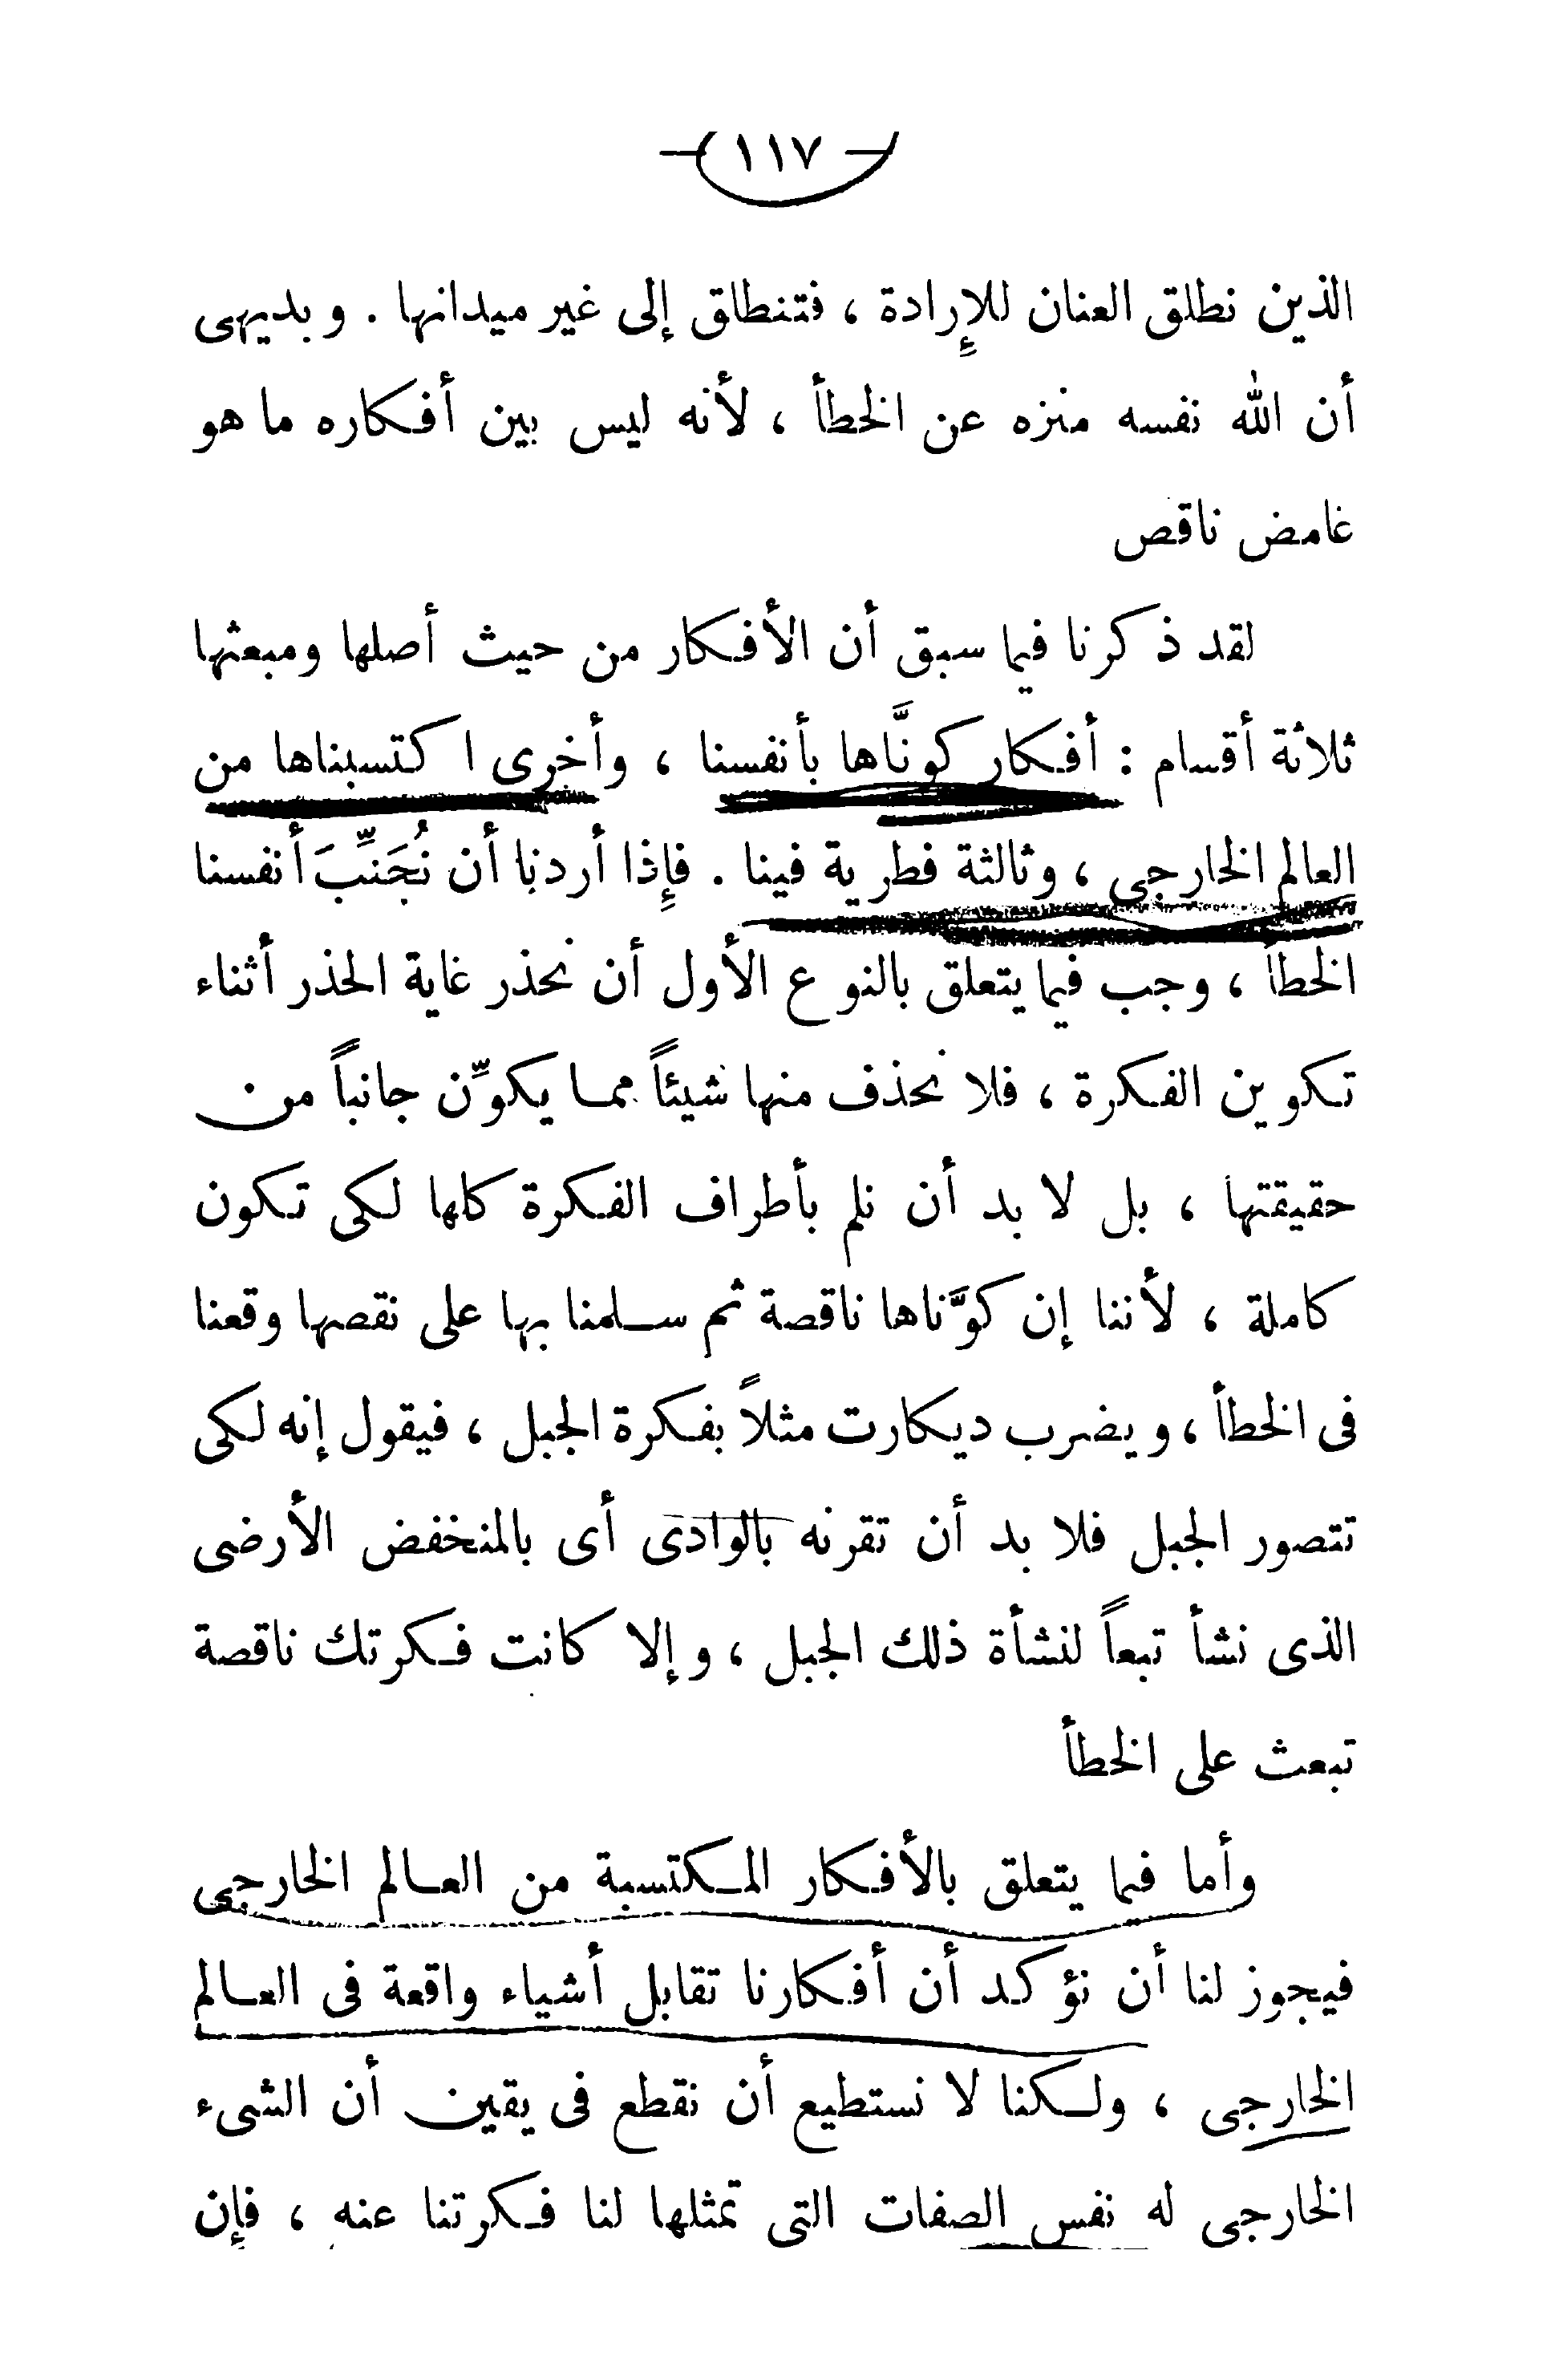 — ١١٧ —
الذين نطلق العنان للإِرادة ، فتنطلق إلى غير ميدانها . وبديهى
أن الله نفسه منزه عن الخطأ ، لأنه ليس بين أفكاره ما هو
غامض ناقص
لقد ذكرنا فيما سبق أن الأفكار من حيث أصلها ومبعثها
ثلاثة أقسام : أفكار كونَّاها بأنفسنا ، وأخرى اكتسبناها من
العالم الخارجى ، وثالثة فطرية فينا . فإِذا أردنا أن نُجَنِّبَ أنفسنا
الخطأ ، وجب فيما يتعلق بالنوع الأول أن نحذر غاية الحذر أثناء
تكوين الفكرة ، فلا نحذف منها شيئاً مما يكوِّن جانباً من
حقيقتها ، بل لا بد أن نلم بأطراف الفكرة كلها لكى تكون
كاملة ، لأننا إن كوَّناها ناقصة ثم سلمنا بها على نقصها وقعنا
فى الخطأ ، ويضرب ديكارت مثلاً بفكرة الجبل ، فيقول إنه لكى
تتصور الجبل فلا بد أن تقرنه بالوادى أى بالمنخفض الأرضى
الذى نشأ تبعاً لنشأة ذلك الجبل ، وإلا كانت فكرتك ناقصة
تبعث على الخطأ
وأما فيما يتعلق بالأفكار المكتسبة من العالم الخارجى
فيجوز لنا أن نؤكد أن أفكارنا تقابل أشياء واقعة فى العالم
الخارجى ، ولكنا لا نستطيع أن نقطع فى يقين أن الشىء
الخارجى له نفس الصفات التى تمثلها لنا فكرتنا عنه ، فإن